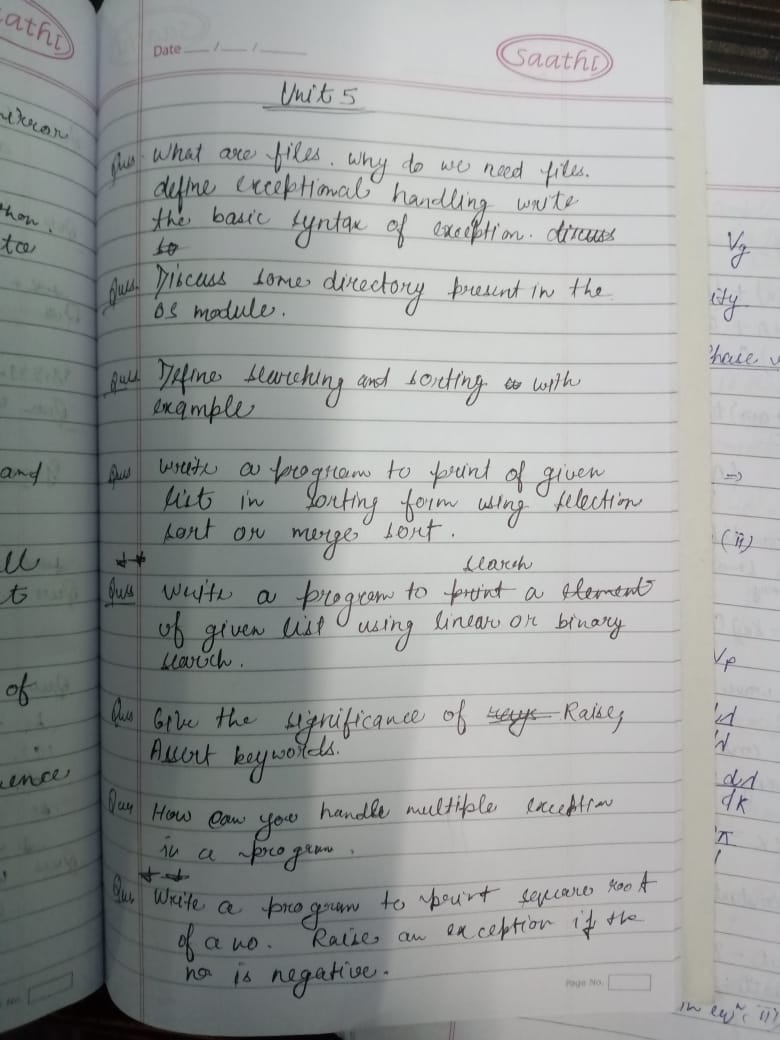 Date __/__/____
Saathi
Unit 5
Ques. What are files. Why do we need files.
define exceptional handling write
the basic syntax of exception. discuss
so
Ques. Discuss some directory present in the
OS module.
Ques Define searching and sorting with
example
Ques Write a program to print of given
list in sorting form using selection
sort or merge sort.
search
Ques Write a program to print a element
of given list using linear or binary
search.
Ques Give the significance of Raise,
Assert keywords.
Ques How can you handle multiple exception
in a program.
Ques Write a program to print square root
of a no. Raise an exception if the
no is negative.
Page No.
aathi
error
thon.
and
of
ence
Vg
ity
(ii)
dk
in eqn (ii)